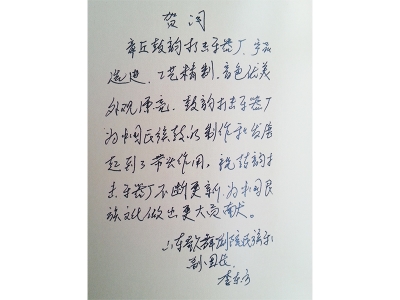 贺词
章丘鼓韵打击乐器厂,
选进、工艺精制、音色优美
外观漂亮、鼓韵打击乐器厂
为中国民族鼓的制作和发展
起到了带头作用，祝鼓韵打
击乐器厂不断更新,为中国民
族文化做出更大贡献。
山东歌舞剧院民族乐
副团长
李东方